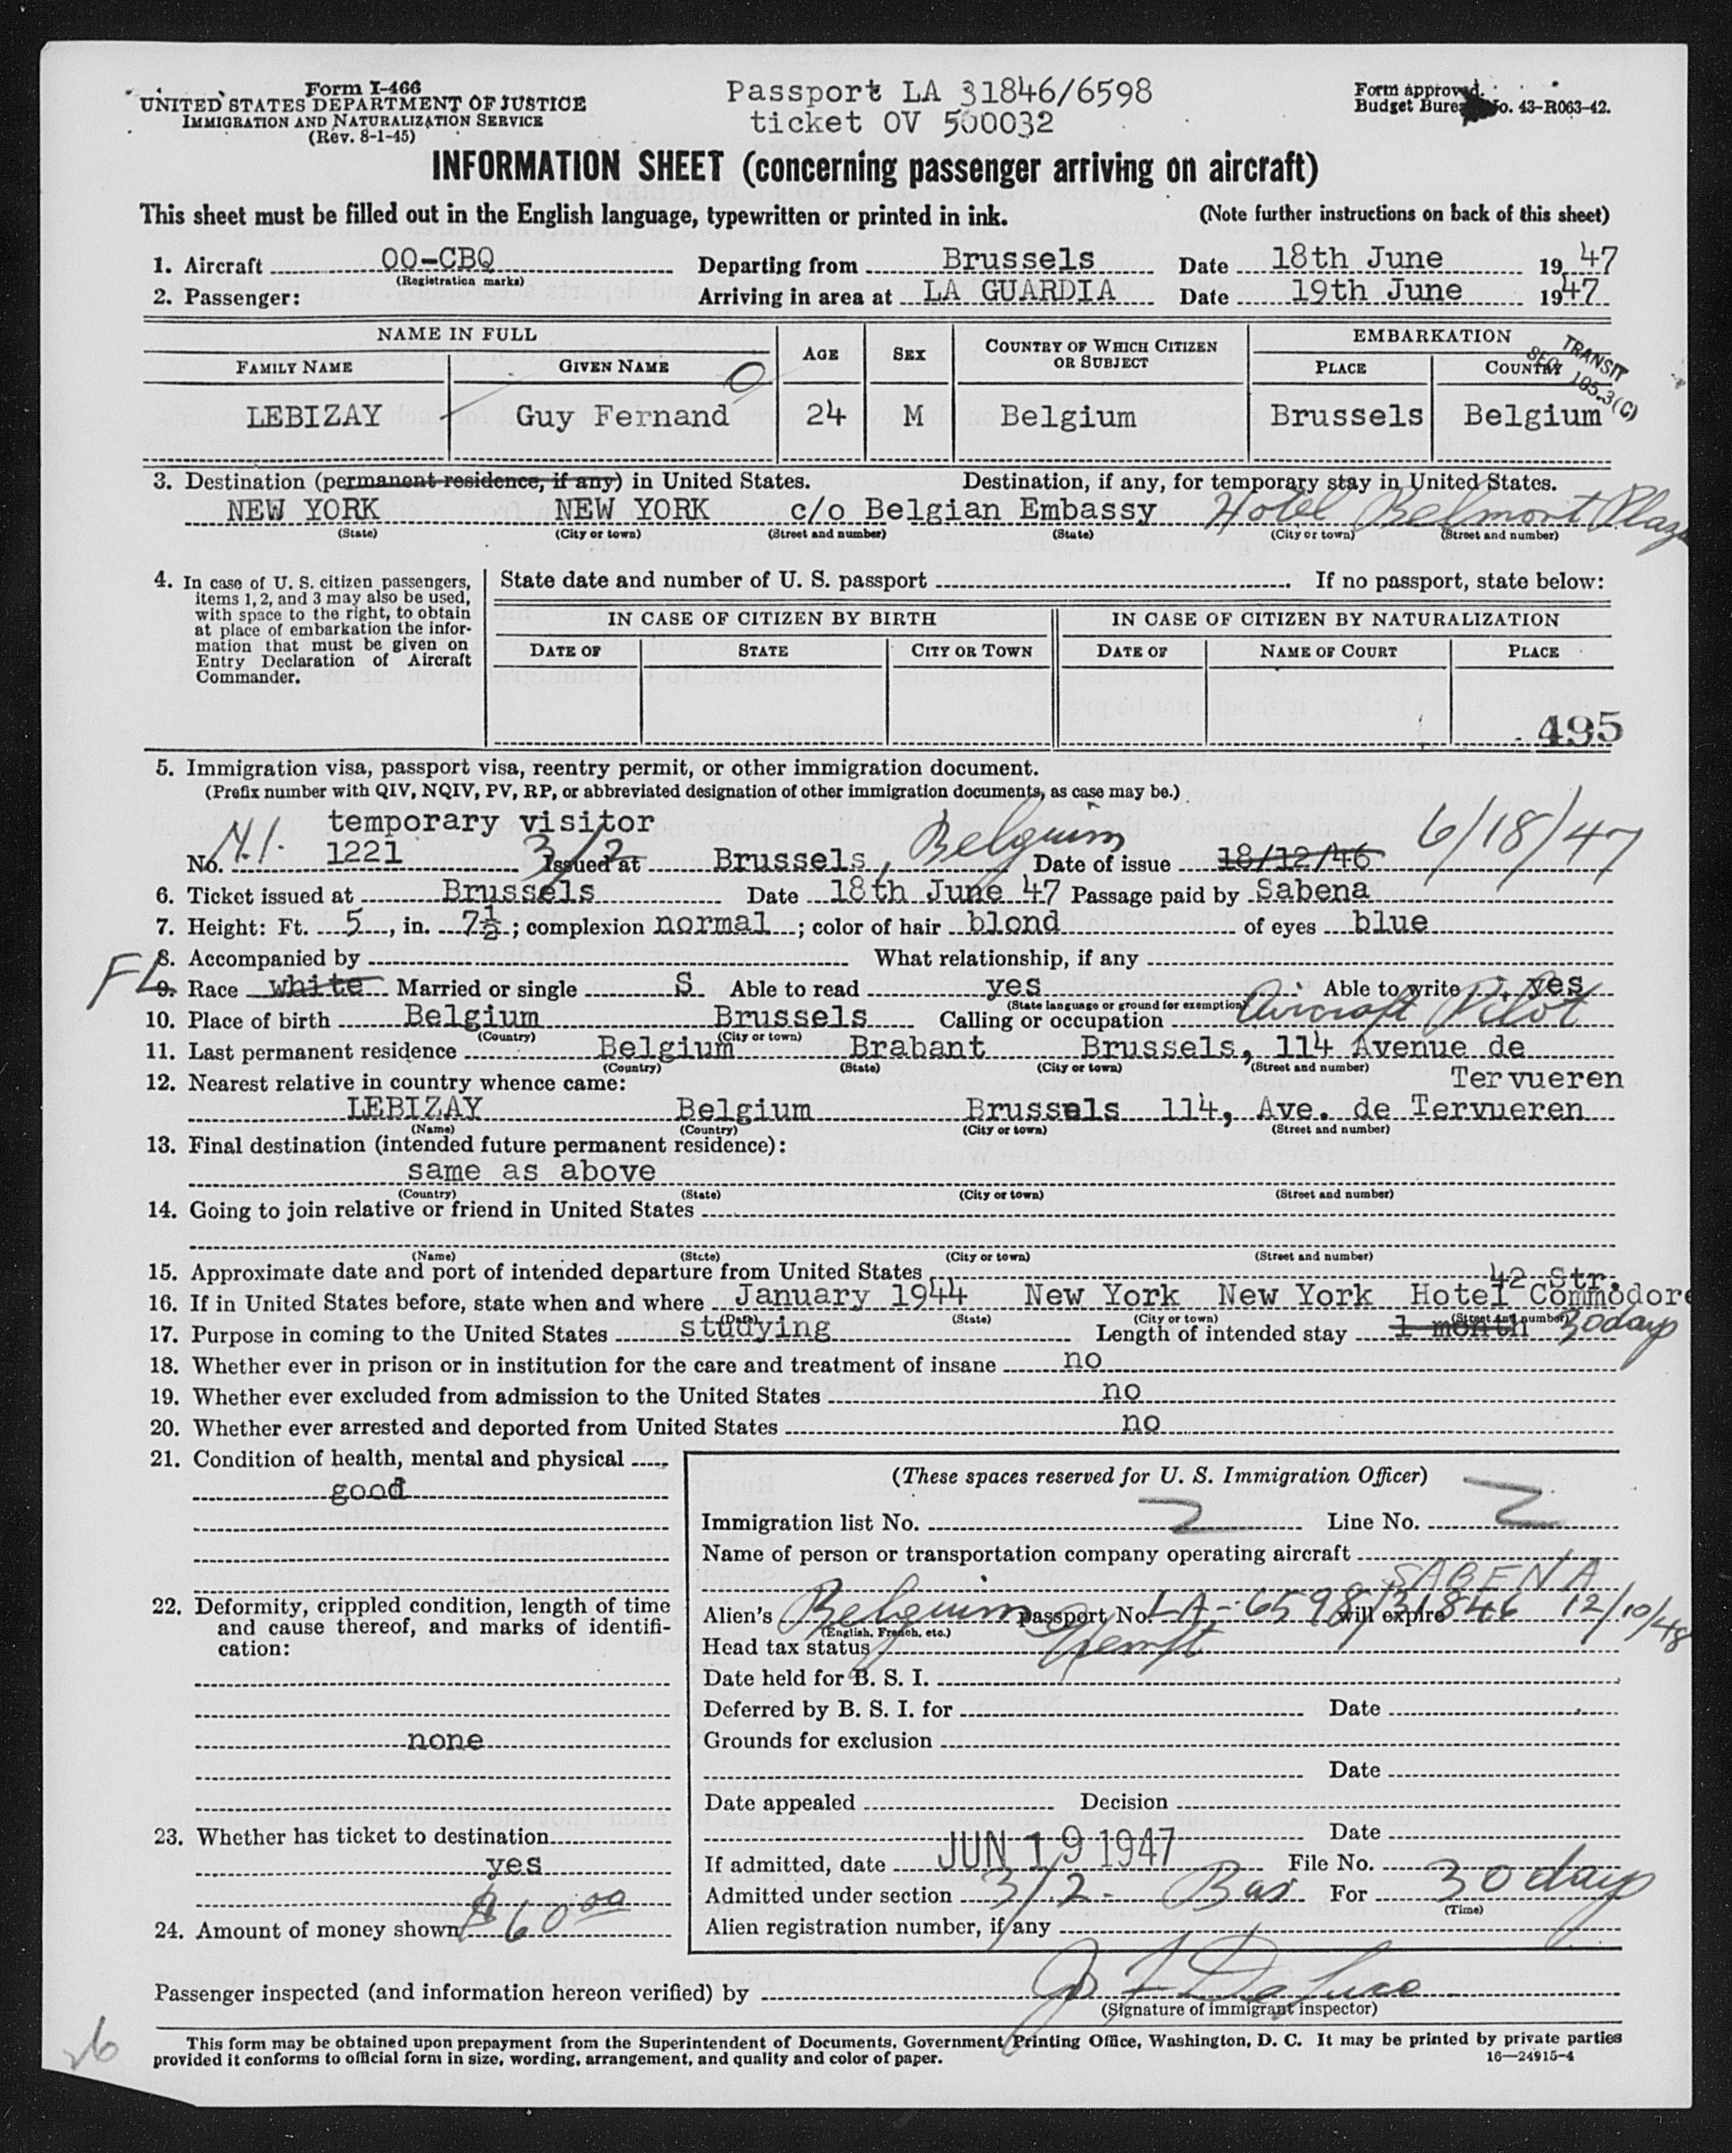 Form I-466
UNITED STATES DEPARTMENT OF JUSTICE
IMMIGRATION AND NATURALIZATION SERVICE
(Rev. 8-1-45)
Passport LA 31846/6598
ticket OV 500032
Form approved.
Budget Bureau No. 43-R063-42.
INFORMATION SHEET (concerning passenger arriving on aircraft)
This sheet must be filled out in the English language, typewritten or printed in ink. (Note further instructions on back of this sheet)
1. Aircraft OO-CBQ Departing from Brussels Date 18th June 1947
(Registration marks)
2. Passenger: Arriving in area at LA GUARDIA Date 19th June 1947
NAME IN FULL AGE SEX COUNTRY OF WHICH CITIZEN OR SUBJECT EMBARKATION
FAMILY NAME GIVEN NAME PLACE COUNTRY
TRANSIT
SEC 165.3(C)
LEBIZAY Guy Fernand 24 M Belgium Brussels Belgium
3. Destination (permanent residence, if any) in United States. Destination, if any, for temporary stay in United States.
NEW YORK NEW YORK c/o Belgian Embassy Hotel Belmont Plaza
(State) (City or town) (Street and number) (State) (City or town) (Street and number)
4. In case of U. S. citizen passengers,
items 1, 2, and 3 may also be used,
with space to the right, to obtain
at place of embarkation the infor-
mation that must be given on
Entry Declaration of Aircraft
Commander.
State date and number of U. S. passport If no passport, state below:
IN CASE OF CITIZEN BY BIRTH IN CASE OF CITIZEN BY NATURALIZATION
DATE OF STATE CITY OR TOWN DATE OF NAME OF COURT PLACE
495
5. Immigration visa, passport visa, reentry permit, or other immigration document.
(Prefix number with QIV, NQIV, PV, RP, or abbreviated designation of other immigration documents, as case may be.)
temporary visitor
No. 1221 3/2 Issued at Brussels, Belgium Date of issue 18/12/46 6/18/47
6. Ticket issued at Brussels Date 18th June 47 Passage paid by Sabena
7. Height: Ft. 5, in. 7½; complexion normal; color of hair blond of eyes blue
8. Accompanied by What relationship, if any
FL
9. Race white Married or single S Able to read yes Able to write yes
(State language or ground for exemption)
10. Place of birth Belgium Brussels Calling or occupation Aircraft Pilot
(Country) (City or town)
11. Last permanent residence Belgium Brabant Brussels, 114 Avenue de
(Country) (State) (City or town) (Street and number)
Tervueren
12. Nearest relative in country whence came:
LEBIZAY Belgium Brussels 114, Ave. de Tervueren
(Name) (Country) (City or town) (Street and number)
13. Final destination (intended future permanent residence):
same as above
(Country) (State) (City or town) (Street and number)
14. Going to join relative or friend in United States
(Name) (State) (City or town) (Street and number)
15. Approximate date and port of intended departure from United States
42 Str.
16. If in United States before, state when and where January 1944 New York New York Hotel Commodore
(Date) (State) (City or town) (Street and number)
17. Purpose in coming to the United States studying Length of intended stay 1 month 30 days
18. Whether ever in prison or in institution for the care and treatment of insane no
19. Whether ever excluded from admission to the United States no
20. Whether ever arrested and deported from United States no
21. Condition of health, mental and physical
good
22. Deformity, crippled condition, length of time
and cause thereof, and marks of identifi-
cation:
none
23. Whether has ticket to destination
yes
24. Amount of money shown $60.00
(These spaces reserved for U. S. Immigration Officer)
Immigration list No. 2 Line No. 2
Name of person or transportation company operating aircraft
SABENA
Alien's Belgium passport No. LA-6598/31846 will expire 12/10/48
(English, French, etc.)
Head tax status Exempt
Date held for B. S. I.
Deferred by B. S. I. for Date
Grounds for exclusion
Date
Date appealed Decision
Date
If admitted, date JUN 19 1947 File No.
Admitted under section 3/2- Bus For 30 days
(Time)
Alien registration number, if any
Passenger inspected (and information hereon verified) by
(Signature of immigrant inspector)
26
This form may be obtained upon prepayment from the Superintendent of Documents, Government Printing Office, Washington, D. C. It may be printed by private parties
provided it conforms to official form in size, wording, arrangement, and quality and color of paper.
16—24915-4